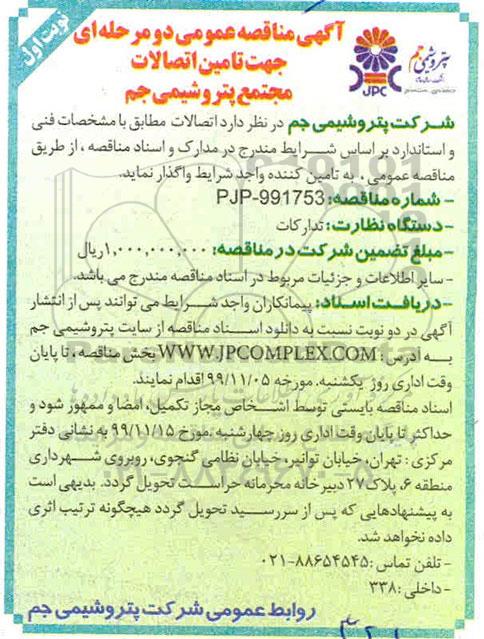 نوبت اول
آگهی مناقصه عمومی دو مرحله‌ای
جهت تامین اتصالات
مجتمع پتروشیمی جم
پتروشیمی جم
JPC
شرکت پتروشیمی جم در نظر دارد اتصالات مطابق با مشخصات فنی
و استاندارد بر اساس شرایط مندرج در مدارک و اسناد مناقصه ، از طریق
مناقصه عمومی ، به تامین کننده واجد شرایط واگذار نماید.
- شماره مناقصه: PJP-991753
- دستگاه نظارت: تدارکات
- مبلغ تضمین شرکت در مناقصه: ۱,۰۰۰,۰۰۰,۰۰۰ ریال
- سایر اطلاعات و جزئیات مربوط در اسناد مناقصه مندرج می باشد.
- دریافت اسناد: پیمانکاران واجد شرایط می توانند پس از انتشار
آگهی در دو نوبت نسبت به دانلود اسناد مناقصه از سایت پتروشیمی جم
به آدرس : WWW.JPCOMPLEX.COM بخش مناقصه ، تا پایان
وقت اداری روز یکشنبه مورخه ۹۹/۱۱/۰۵ اقدام نمایند.
اسناد مناقصه بایستی توسط اشخاص مجاز تکمیل، امضا و ممهور شود و
حداکثر تا پایان وقت اداری روز چهارشنبه مورخ ۹۹/۱۱/۱۵ به نشانی دفتر
مرکزی : تهران، خیابان توانیر، خیابان نظامی گنجوی، روبروی شهرداری
منطقه ۶، پلاک ۲۷ دبیرخانه محرمانه حراست تحویل گردد. بدیهی است
به پیشنهادهایی که پس از سررسید تحویل گردد هیچگونه ترتیب اثری
داده نخواهد شد.
- تلفن تماس: ۸۸۶۵۴۵۴۵-۰۲۱
- داخلی: ۳۳۸
روابط عمومی شرکت پتروشیمی جم